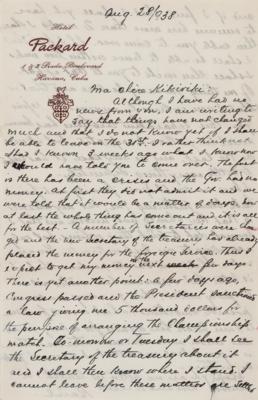 Aug. 28/938
Hotel
Packard
1 & 3 Prado Boulevard
Havana, Cuba
Ma chère
Although I have had no
news from you, I am writing to
say that things have not changed
much and that I do not know yet if I shall
be able to leave on the 31st. I rather think not
Had I known 3 weeks ago what I know now
I would have told you to come over. The fact
is there has been a crisis and the Gov. has no
money. At first they did not admit it and we
were told that it would be a matter of days, now
at last the whole thing has come out and it is all
for the best. - A number of Secretaries were chan
ged and the new Secretary of the treasury has already
placed the money for the foreign service. Thus I
expect to get my money next few days.
There is yet another point: a few days ago,
Congress passed and the President sanctioned
a law giving me 5 thousand dollars for
the purpose of arranging the Championship
match. To-morrow or Tuesday I shall see
the Secretary of the treasury about it
and I shall then know where I stand. I
cannot leave before these matters are settled